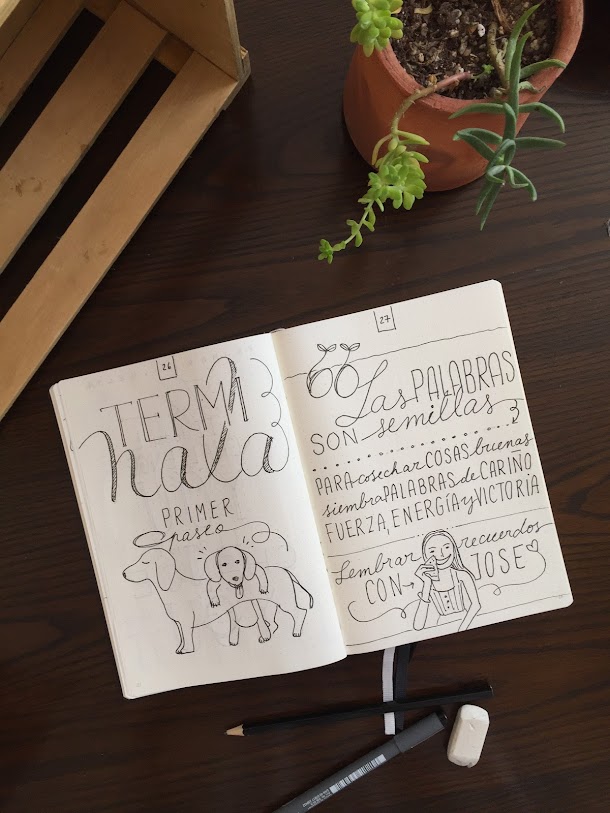 26
TERMI
nala
PRIMER
paseo
27
“ Las PALABRAS
SON semillas
PARA cosechar COSAS buenas
siembra PALABRAS de CARIÑO
FUERZA, ENERGÍA y VICTORIA
Sembrar recuerdos
CON → JOSE ♡